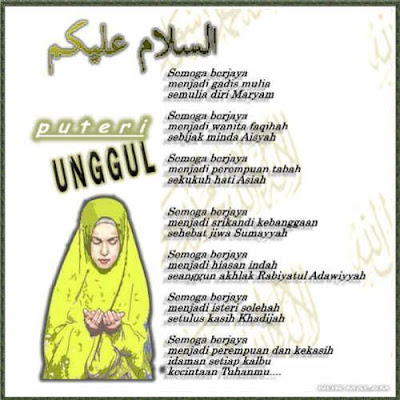 السلام عليكم
puteri
UNGGUL
Semoga berjaya
menjadi gadis mulia
semulia diri Maryam
Semoga berjaya
menjadi wanita faqihah
sebijak minda Aisyah
Semoga berjaya
menjadi perempuan tabah
sekukuh hati Asiah
Semoga berjaya
menjadi srikandi kebanggaan
sehebat jiwa Sumayyah
Semoga berjaya
menjadi hiasan indah
seanggun akhlak Rabiyatul Adawiyyah
Semoga berjaya
menjadi isteri solehah
setulus kasih Khadijah
Semoga berjaya
menjadi perempuan dan kekasih
idaman setiap kalbu
kecintaan Tuhanmu....